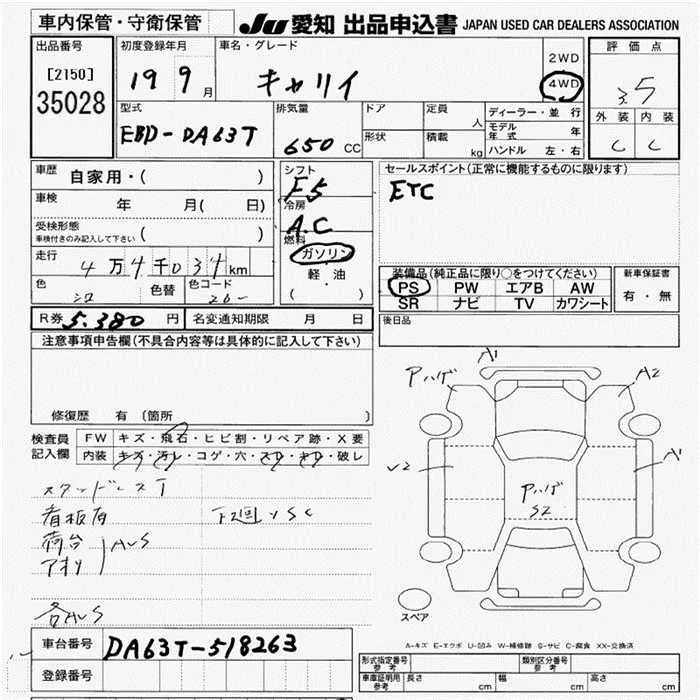 車内保管・守衛保管
JU 愛知 出品申込書 JAPAN USED CAR DEALERS ASSOCIATION
出品番号
[2150]
35028
初度登録年月
19 9月
車名・グレード
キャリイ
2WD
4WD
評価点
3.5
外装 内装
C C
型式
EBD-DA63T
排気量
650 CC
ドア
形状
定員 人
積載 kg
ディーラー・並行
モデル年式 年
ハンドル 左・右
車歴 自家用・( )
車検 年 月( 日)
受検形態
車検付きのみ記入して下さい ( )
走行 4万4千034km
色 シロ
色替
色コード 26U
シフト
F5
冷房
A.C
燃料
ガソリン
軽油
( )
セールスポイント(正常に機能するものに限ります)
ETC
装備品(純正品に限り○をつけてください)
PS PW エアB AW
SR ナビ TV カワシート
新車保証書
有・無
R券 5.380 円
名変通知期限 月 日
後日品
注意事項申告欄(不具合内容等は具体的に記入して下さい)
修復歴 有 (箇所 )
検査員記入欄
FW キズ・飛石・ヒビ割・リペア跡・X要
内装 キズ・汚レ・コゲ・穴・スレ・キレ・破レ
スタッドレスT
看板有
荷台
アオリ
AUS
各AUS
A1
Pハゲ
A2
V2
A1
Pハゲ
S2
スペア
A-キズ E-エクボ U-凹み W-補修跡 S-サビ C-腐食 XX-交換済
車台番号 DA63T-518263
登録番号
形式指定番号 参考
類別区分番号 参考
車庫証明用 参考
長さ cm
幅 cm
高さ cm